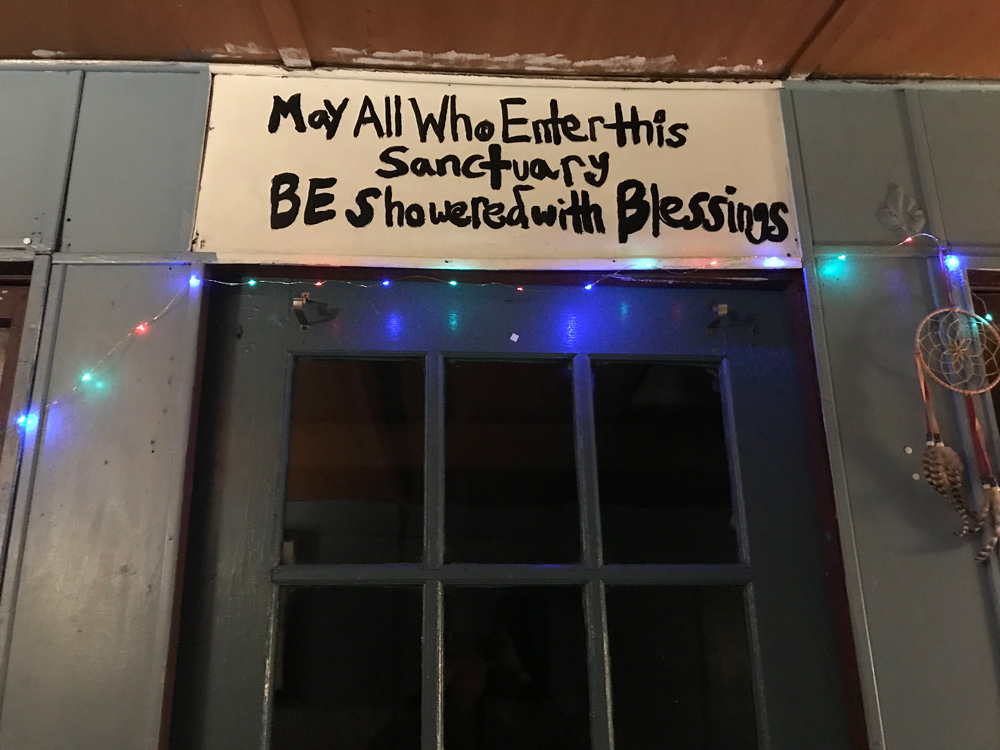 May All Who Enter this
Sanctuary
BE Showered with Blessings